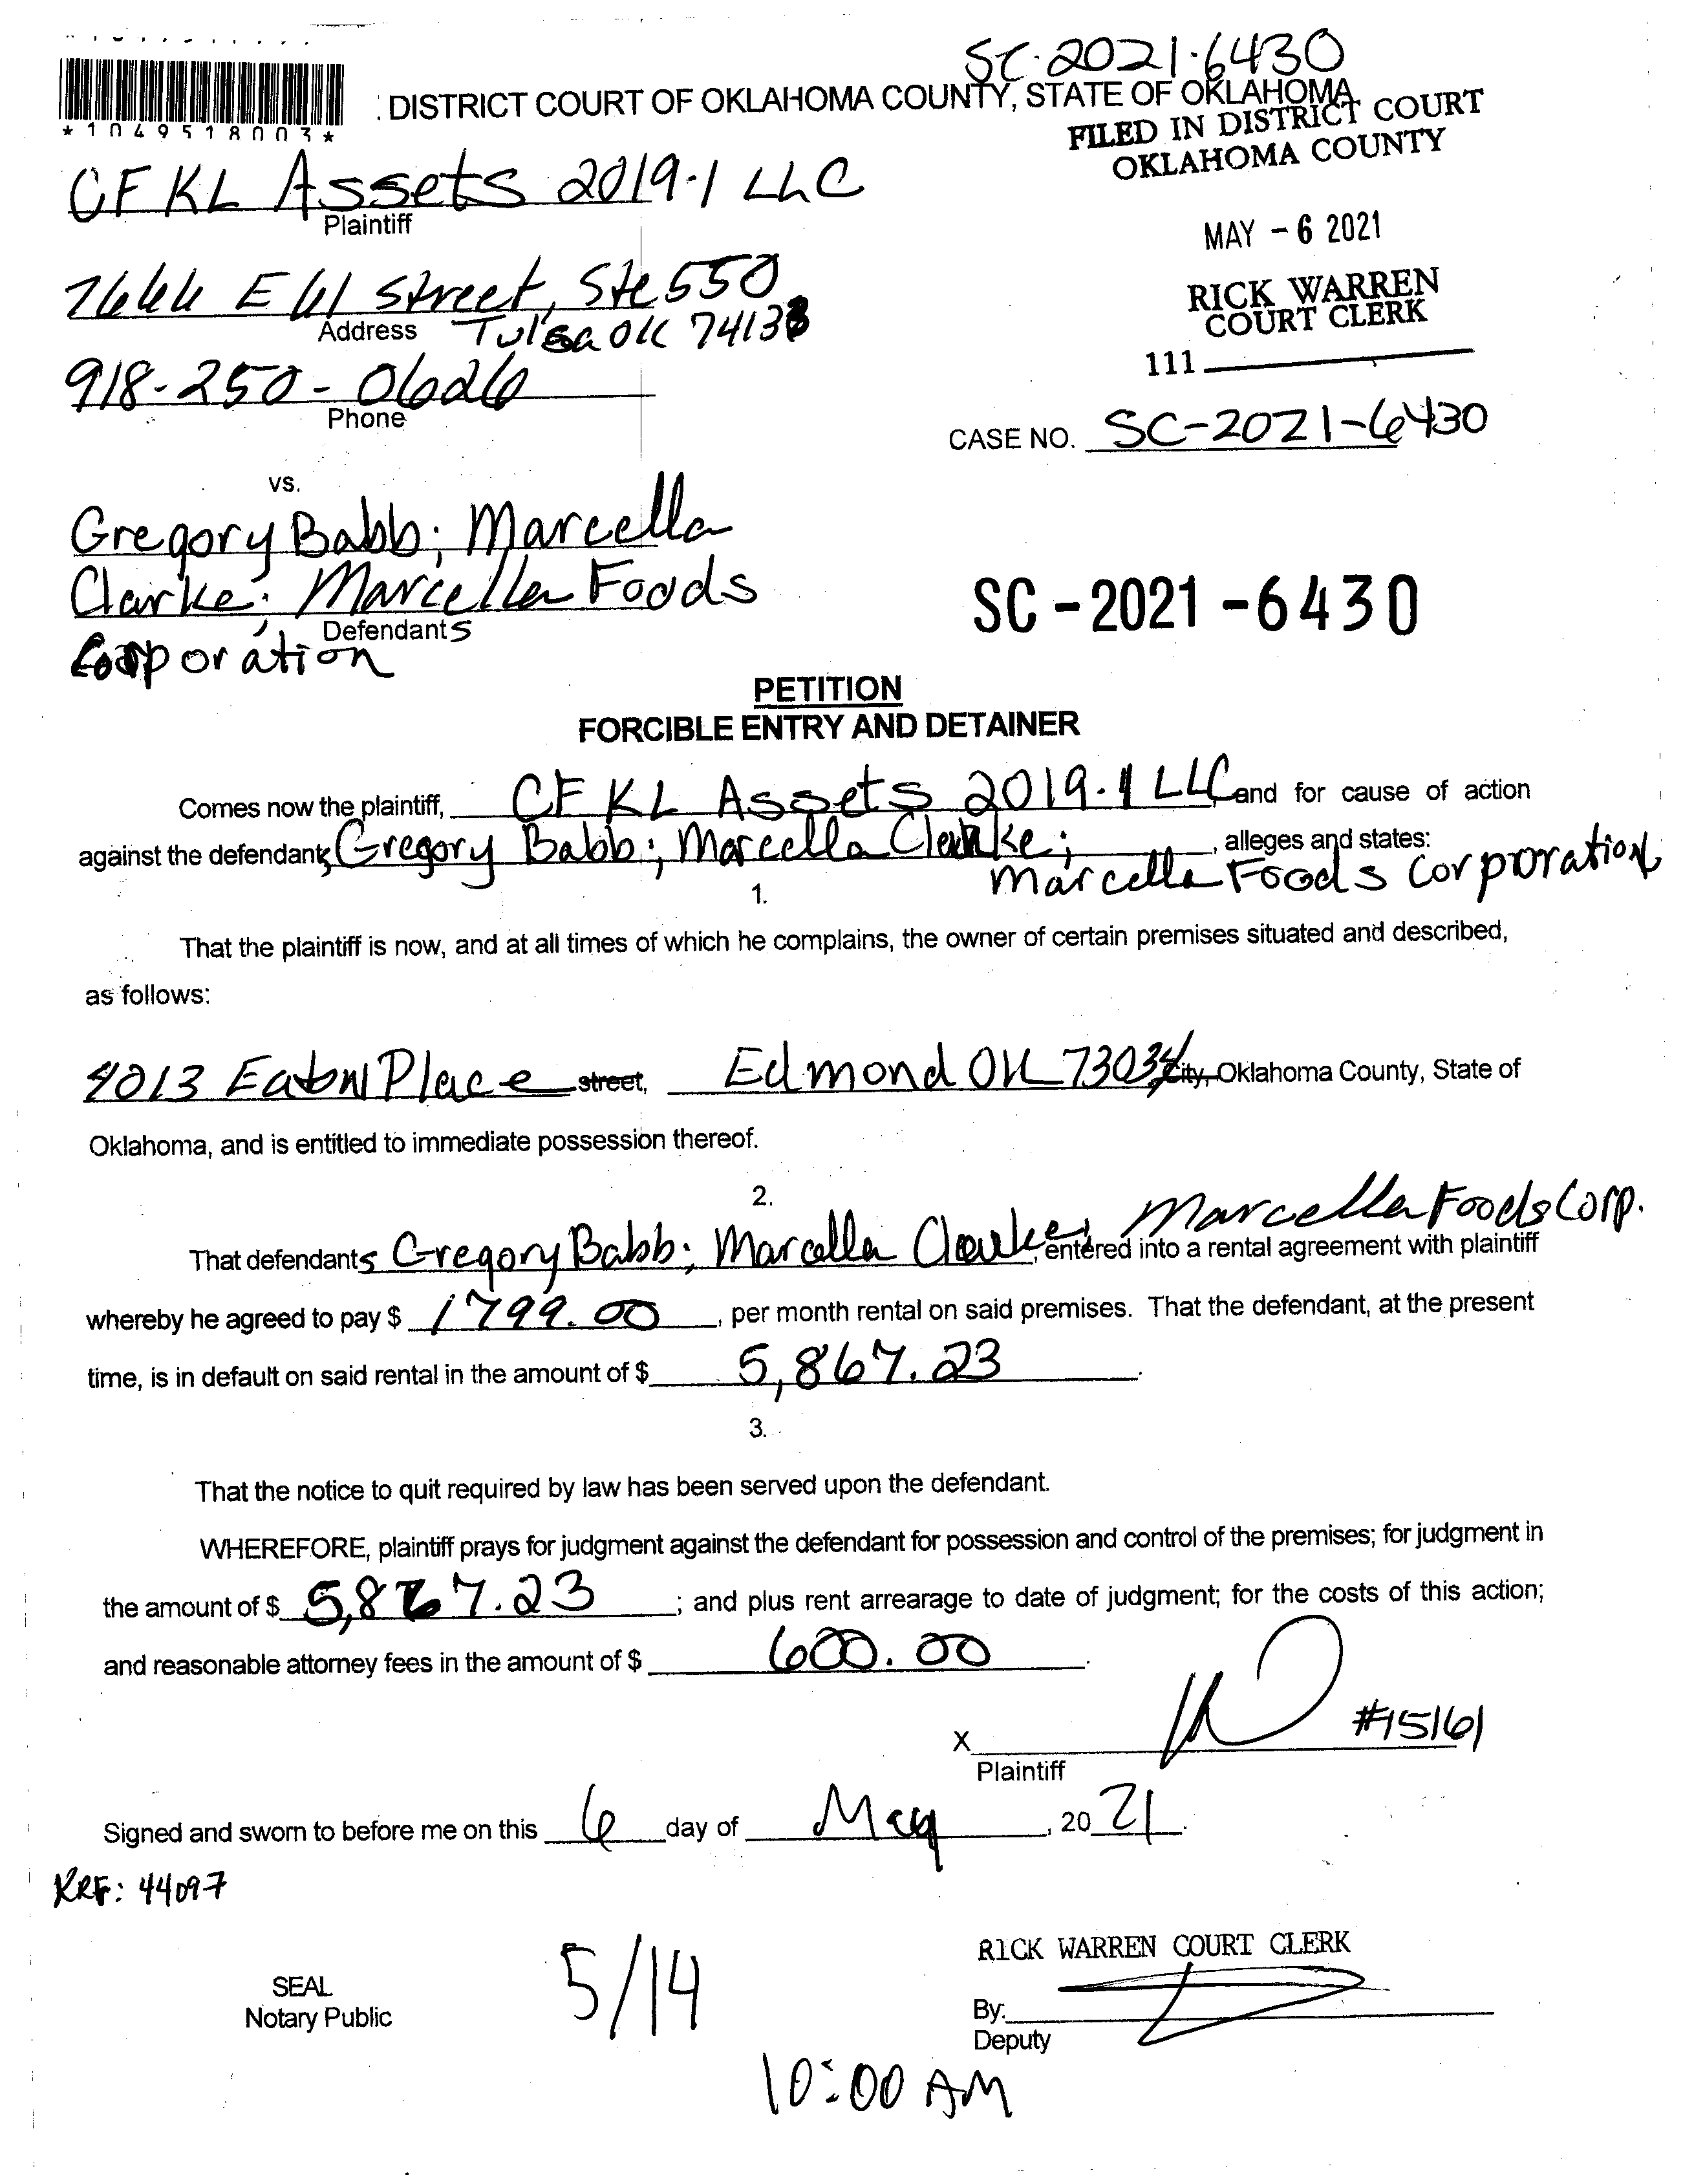 SC-2021-6430
DISTRICT COURT OF OKLAHOMA COUNTY, STATE OF OKLAHOMA
*1049518003*
FILED IN DISTRICT COURT
OKLAHOMA COUNTY
CFKL Assets 2019-1 LLC
Plaintiff
MAY - 6 2021
7666 E 61 Street, Ste 550
Address Tulsa OK 74133
RICK WARREN
COURT CLERK
111
918-250-0626
Phone
CASE NO. SC-2021-6430
vs.
Gregory Babb; Marcella
Clarke; Marcella Foods
Defendants
Corporation
SC-2021-6430
PETITION
FORCIBLE ENTRY AND DETAINER
Comes now the plaintiff, CFKL Assets 2019-1 LLC and for cause of action
against the defendants Gregory Babb; Marcella Clarke; , alleges and states:
Marcella Foods Corporation
1.
That the plaintiff is now, and at all times of which he complains, the owner of certain premises situated and described,
as follows:
4013 Eaton Place street, Edmond OK 73034 City, Oklahoma County, State of
Oklahoma, and is entitled to immediate possession thereof.
2.
Marcella Foods Corp.
That defendants Gregory Babb; Marcella Clarke; , entered into a rental agreement with plaintiff
whereby he agreed to pay $ 1799.00 , per month rental on said premises. That the defendant, at the present
time, is in default on said rental in the amount of $ 5,867.23 .
3.
That the notice to quit required by law has been served upon the defendant.
WHEREFORE, plaintiff prays for judgment against the defendant for possession and control of the premises; for judgment in
the amount of $ 5,867.23 ; and plus rent arrearage to date of judgment; for the costs of this action;
and reasonable attorney fees in the amount of $ 600.00 .
X #15161
Plaintiff
Signed and sworn to before me on this 6 day of May , 20 21 .
KRF: 44097
RICK WARREN COURT CLERK
SEAL
Notary Public
5/14
By:
Deputy
10:00 AM